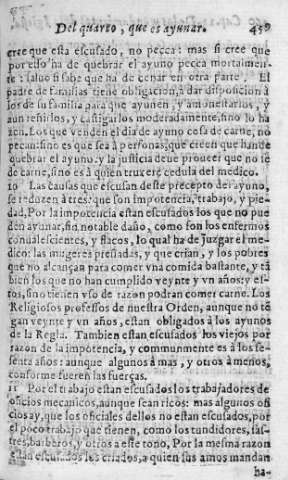 Del quarto, que es ayunar. 459
cree que esta escusado, no pecca: mas si cree que
por esso ha de quebrar el ayuno pecca mortalmen-
te: saluo si sabe que ha de cenar en otra parte. El
padre de familias tiene obligacion, a dar disposicion à
los de su familia para que ayunen, y amonestarlos, y
aun reñirlos, y castigarlos moderadamente, sino lo ha
zen. Los que venden el dia de ayuno cosa de carne, no
pecan: sino es que sea à personas, que creen que han de
quebrar el ayuno. y la justicia deue proueer que no
de carne, sino es à quien truxere cedula del medico.
10 Las causas que escusan deste precepto del ayuno,
se reduzen à tres: que son impotencia, trabajo, y pie-
dad, Por la impotencia estan escusados los que no pue
den ayunar, sin notable daño, como son los enfermos
conualescientes, y flacos, lo qual ha de Juzgar el me-
dico: las mugeres preñadas, y que crian, y los pobres
que no alcançan para comer vna comida bastante, y tà
bien los que no han cumplido veynte y vn años: y es-
tos, sino tienen vso de razon podran comer carne. Los
Religiosos professos de nuestra Orden, aunque no tē
gan veynte y vn años, estan obligados à los ayunos
de la Regla. Tambien estan escusados los viejos por
razon de la impotencia, y communmente es à los se-
senta años: aunque algunos à mas, y otros à menos,
conforme fueren las fuerças.
11 Por el trabajo estan escusados los trabajadores de
oficios mecanicos, aunque sean ricos: mas algunos ofi
cios ay, que los oficiales dellos no estan escusados, por
el poco trabajo que tienen, como los tundidores, sas-
tres, barberos, y otros a este tono, Por la mesma razon
estan escusados los criados, a quien sus amos mandan
ha-